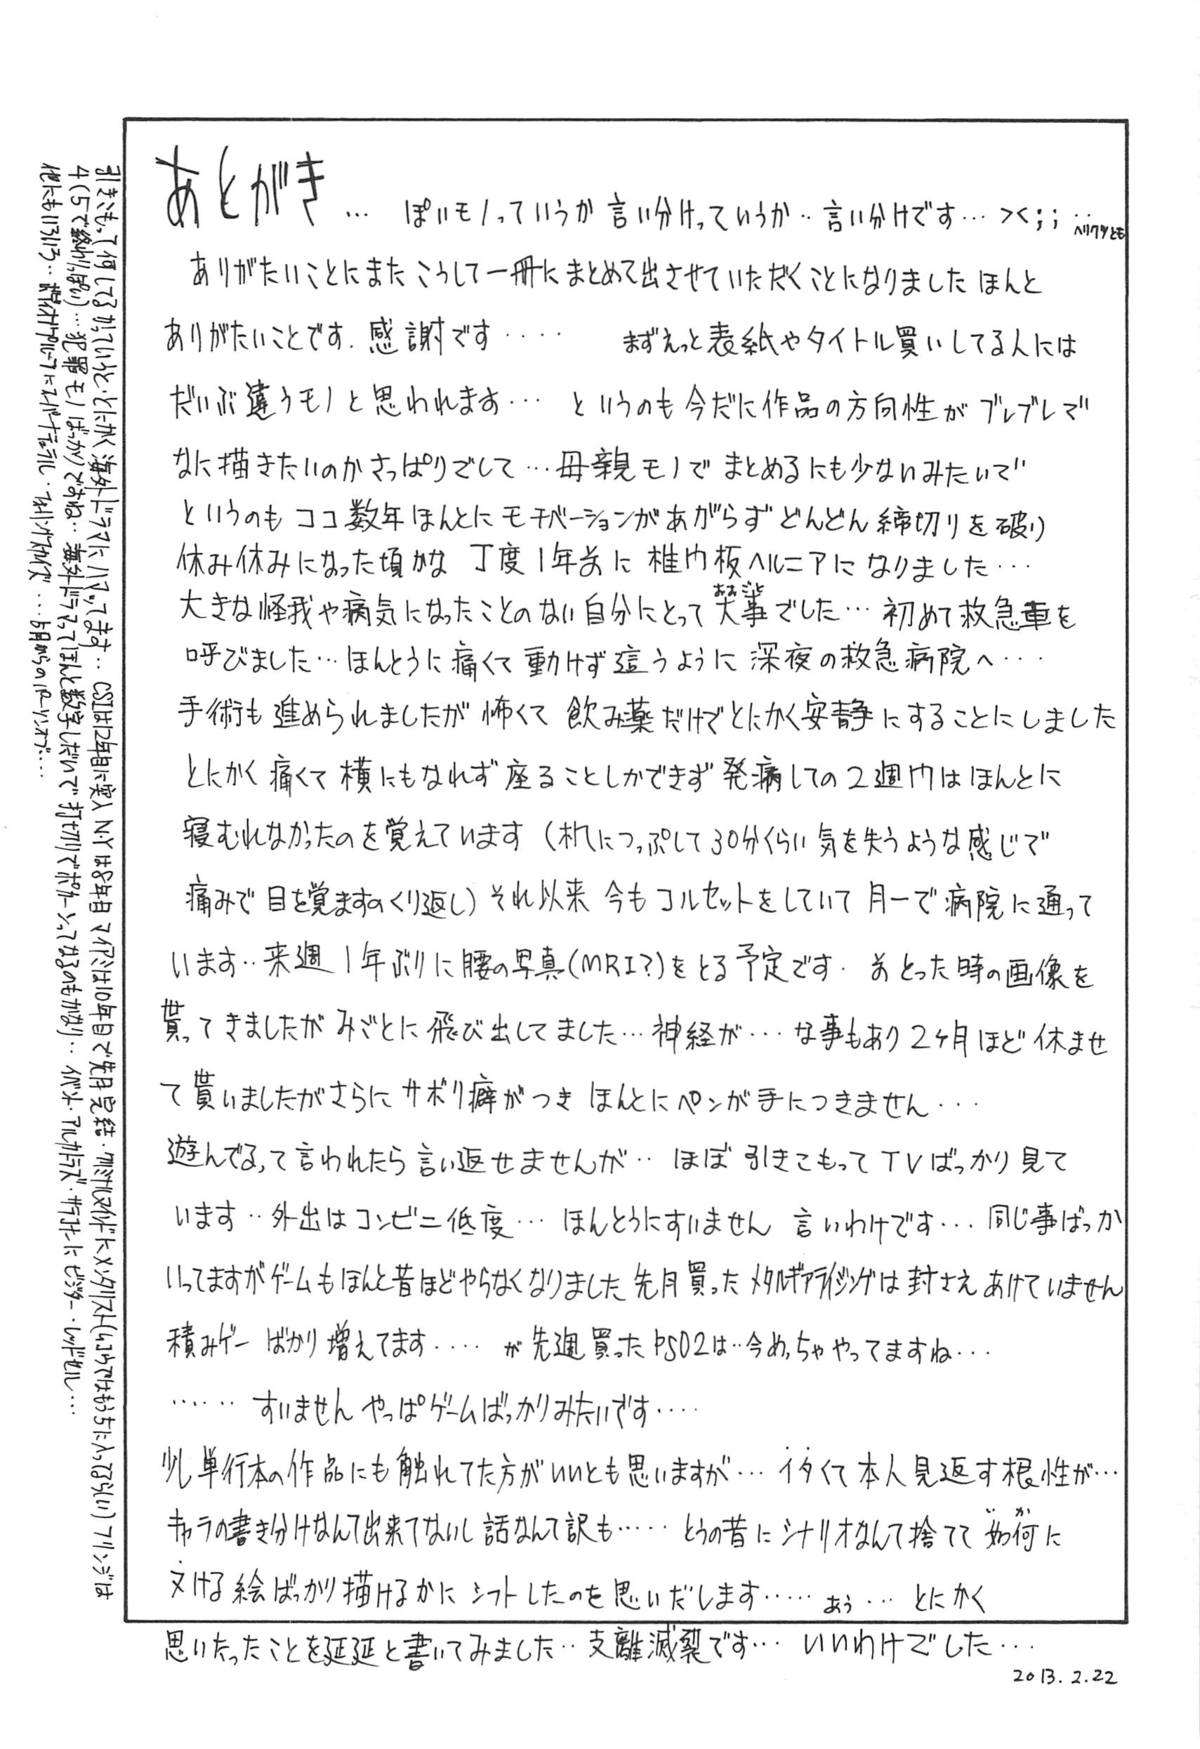 あとがき… ぽいモノっていうか 言い分けっていうか‥ 言い分けです… ><;; ‥ヘリクツとも
ありがたいことにまた こうして一冊に まとめて出させていただくことになりました ほんと
ありがたいことです. 感謝です‥‥ まずえっと表紙やタイトル買いしてる人には
だいぶ違うモノと思われます… というのも 今だに作品の方向性が ブレブレで
なに描きたいのか さっぱりでして…母親モノで まとめるにも少ないみたいで
というのも ココ数年 ほんとに モチベーションがあがらず どんどん 締切りを破り
休み休みになった頃かな 丁度1年前に 椎ウ板ヘルニアになりました…
大きな怪我や病気になったことのない自分にとって 大事でした… 初めて救急車を
おおごと
呼びました…ほんとうに痛くて 動けず 這うように 深夜の救急病院へ…
手術も進められましたが 怖くて 飲み薬だけで とにかく安静にすることにしました
とにかく 痛くて 横にもなれず 座ることしかできず 発病しての2週ウはほんとに
寝むれなかったのを覚えています (机につっぷして30分くらい 気を失うような感じで
痛みで 目を覚ますのくり返し) それ以来 今も コルセットをしていて 月一で 病院に通って
います‥ 来週 1年ぶりに 腰の写真(MRI?)をとる予定です. 前とった時の画像を
貰ってきましたが みごとに 飛び出してました…神経が… な事もあり 2ヶ月ほど休ませ
て貰いましたが さらに サボリ癖がつき ほんとに ペンが手につきません…
遊んでるって言われたら 言い返せませんが‥ ほぼ 引きこもって TVばっかり見て
います‥ 外出はコンビニ低度… ほんとうにすいません 言いわけです… 同じ事ばっか
いってますが ゲームもほんと昔ほどやらなくなりました 先月買った メタルギアライジングは 封さえ あけていません
積みゲー ばかり増えてます‥‥ が 先週買った PSO2は‥今めっちゃやってますね…
‥‥‥ すいません やっぱゲームばっかりみたいです‥‥
少し単行本の作品にも 触れてた方がいいとも思いますが… イタくて本人見返す根性が…
キャラの書き分けなんて出来てないし 話なんて訳も‥‥‥ とうの昔に シナリオなんて捨てて 如何に
か
ヌける 絵ばっかり描けるかに シフトしたのを思いだします‥‥‥ ぁぅ… とにかく
思いたったことを延延と書いてみました‥ 支離滅裂です… いいわけでした…
2013.2.22
引きこもって何してるかっていうと、とにかく海外ドラマにハマってます‥ CSIは12年目に突入 N.Yは8年目 マイアミは10年目で先月完結・クリミナルマインドに メンタリスト(ムコウではもう5に入ってるらしい) フリンジは
4(5で終わりっぽい)…犯罪モノばっかりですね‥ 海外ドラマってほんと数字しだいで 打ち切りでポカーンってなるのもかなり‥ イベント・アルカトラズ・サラコナーに ビジター・レッドセル…
他にもいろいろ‥ ボディオブプルーフに スーパーナチュラル・フォーリングスカイズ… 5月からの パーソンオブ…